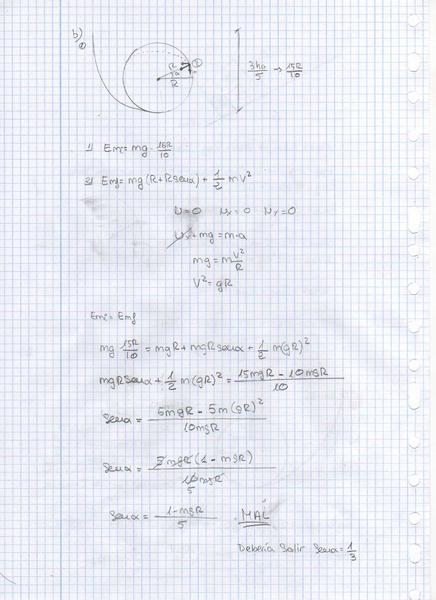 b)
R α R ①
3h₀/5 → 15R/10
1) Emi = mg · 15R/10
2) Emf = mg(R + R senα) + 1/2 mV²
N = 0 Nx = 0 Ny = 0
Nx + mg = m·a
mg = m V²/R
V² = gR
Emi = Emf
mg 15R/10 = mgR + mgR senα + 1/2 m(gR)²
mgR senα + 1/2 m(gR)² = (15mgR − 10mgR)/10
senα = (5mgR − 5m(gR)²)/10mgR
senα = 5mgR(1 − mgR)/10mgR 5
senα = (1 − mgR)/5 MAL
Debería salir senα = 1/3